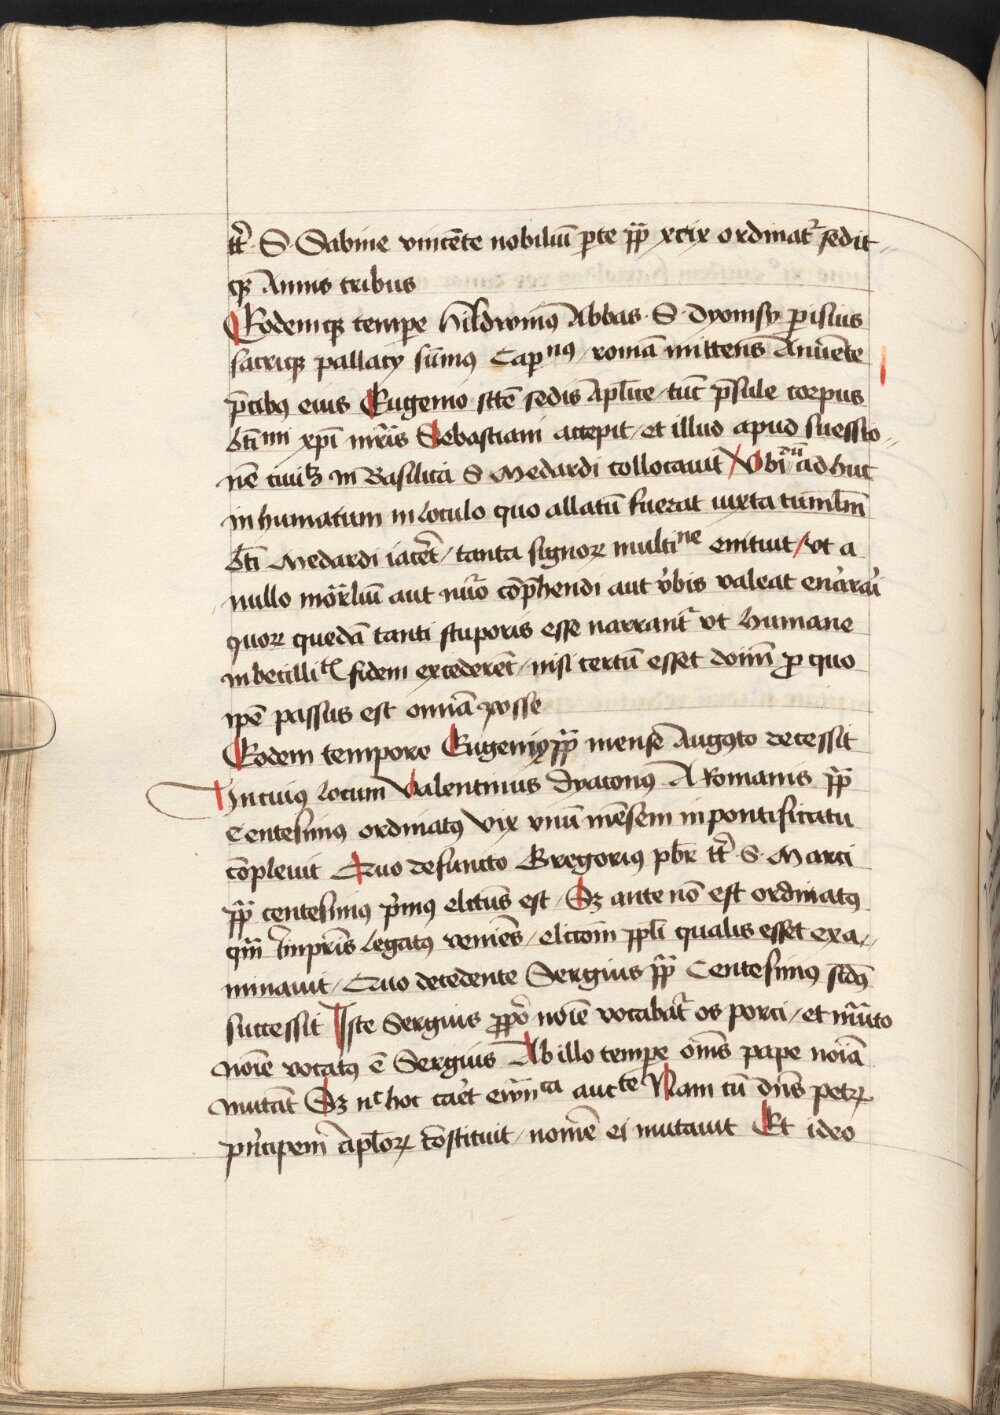 tt̄ S Sabine vincēte nobiliū ꝑte pp̄ xcix ordinat᷑ sedit⸗
qꝫ Annis tribus
Eodemqꝫ tempe hildwinꝰ Abbas S dyonisy ꝑisius
sacriqꝫ pallacy sūmꝰ Capnꝰ / romā mittens Anuēte
p̄cibꝰ eius Eugenio scē sedis Apl̄ice / tūc p̄sule corpus
bt̄imi xp̄i mr̄is Sebastiani accepit / et illud apud suessio⸗
nē ciuiꝫ in Basilica S Medardi collocauit / Vbi cū adhuc
inhumatum in loculo quo allatū fuerat iuxta tumlm̄
bt̄i Medardi iacēt / tanta signoꝝ multine enituit / vt a
nullo mor̄liū aut nūo cōp̄hendi aut v̓bis valeat enarrari
quoꝝ quedā tanti stuporis esse narrant᷑ vt humane
inbecillitꝭ fidem excederēt / nisi certū esset dom̄ ꝓ quo
ip̄e passus est om̄ia posse
Eodem tempore Eugeniꝰ pp̄ mense Augusto decessit
In cuius locum Valentinus dyaconꝰ A Romanis pp̄
Centesimꝰ ordinatꝰ vix vnū mēsem in pontificatu
cōpleuit Quo defuncto Gregorius pb̄r tt̄ S Marci
pp̄ centesimꝰ p̓mꝰ elcūs est / Sꝫ ante nō est ordinatꝰ
qm̄ Imp̄ris legatꝰ veniēs / elcōin ppl̄i qualis esset exa⸗
minauit / Quo decedente Sergius pp̄ Centesimꝰ scd̄ꝰ
successit Iste Sergius ꝓp̓o noīe vocabat᷑ os porci / et mūto
noīe vocatꝰ ē Sergius Ab illo tempe om̄s pape noīa
mutāt Sꝫ nͨ hoc caret ewn̄ca aucte Nam cū dn̄s petꝝ
p̓ncipem apl̄oꝝ cōstituit / nomē ei mutauit Et ideo